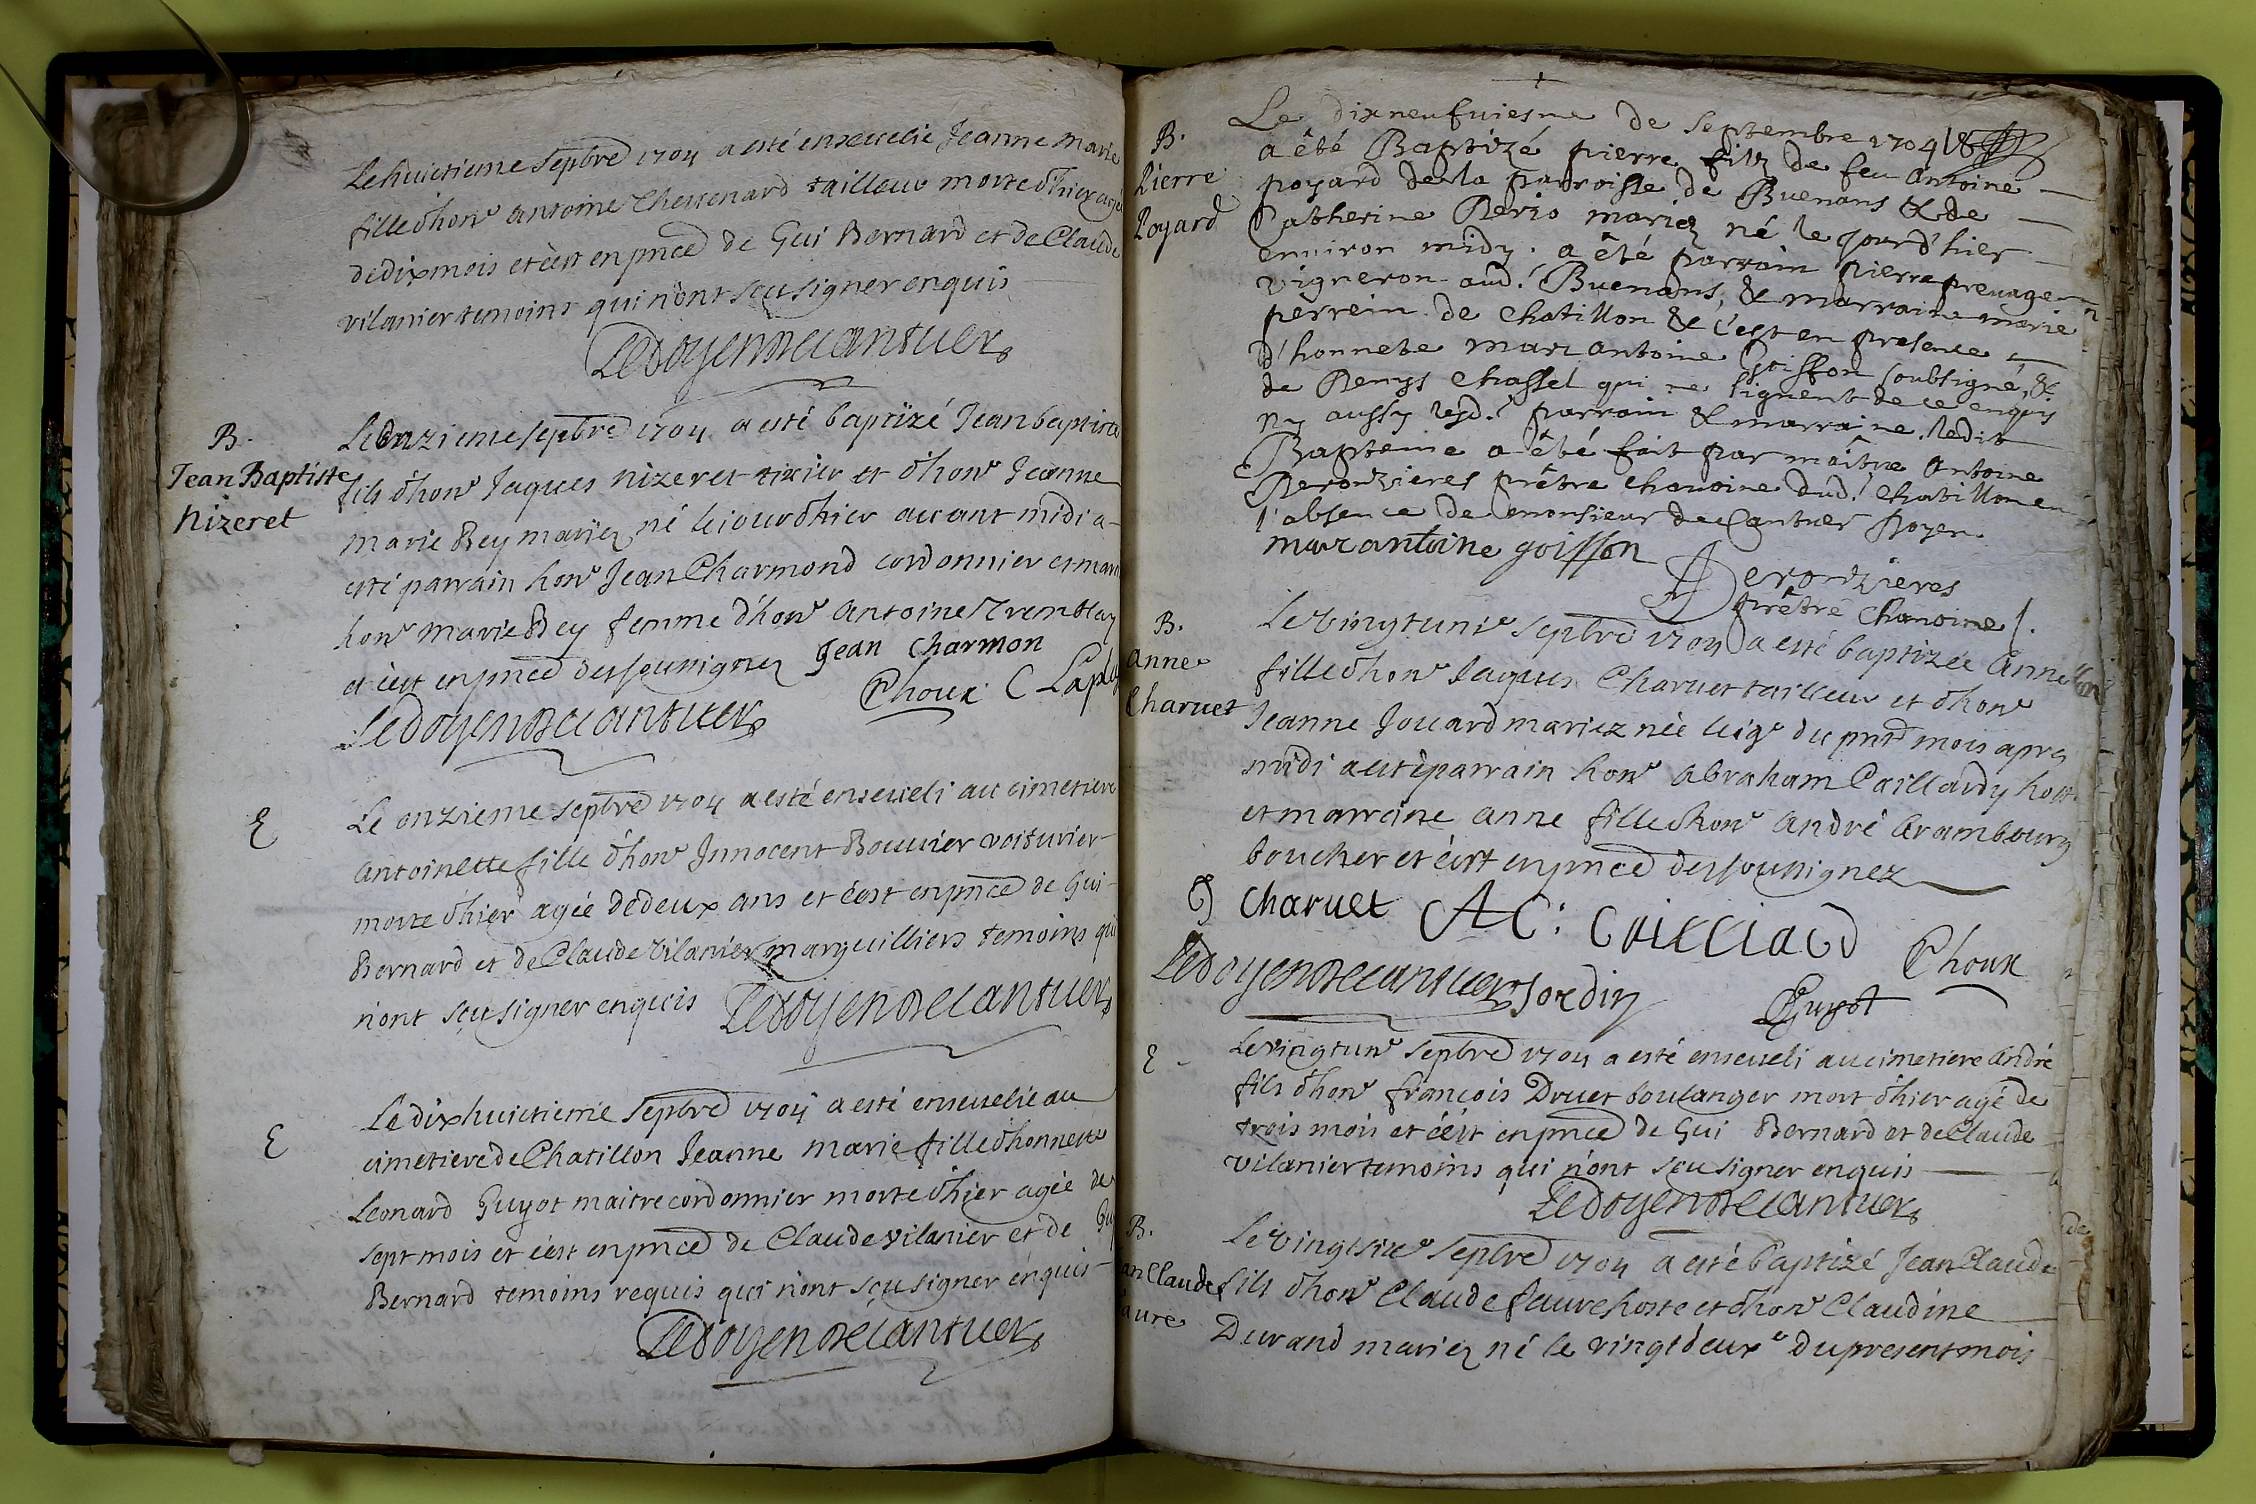 Le huictieme Sepbre 1704 a esté enseuelie Jeanne Marie
fille d'hon.e Antoine Cheuenard tailleur morte d'hier agée
de dix mois et c'est en pnce de Gui Bernard et de Claude
vilanier temoins qui n'ont sçu signer enquis
Ledoyen De Cantuer
B.
Jean Baptiste
Nizeret
Le onzieme sepbre 1704 a esté baptizé Jean baptiste
fils d'hon.e Jaques Nizeret tixier et d'hon.e Jeanne
Marie Bey mariez né le jour d'hier auant midi a
esté parrain hon.e Jean Charmond cordonnier et mare
hon.e Marie Bey femme d'hon.e Antoine Tremblay
et c'est en pnce des soussignez Jean Charmon
Choux C
Ledoyen De Cantuer
E
Le onzieme sepbre 1704 a esté enseueli au cimetiere
Antoinette fille d'hon.e Innocent Bouuier voiturier
morte d'hier agée de deux ans et c'est en pnce de Gui
Bernard et de Claude Vilanier marguilliers temoins qui
n'ont sçu signer enquis Ledoyen De Cantuer
E
Le dixhuictieme Sepbre 1704 a esté enseuelie au
cimetiere de Chatillon Jeanne Marie fille d'honnete
Leonard Guyot maitre cordonnier morte d'hier agée de
sept mois et c'est en pnce de Claude vilanier et de Gui
Bernard temoins requis qui n'ont sçu signer enquis
Ledoyen De Cantuer
B.
Pierre
Poyard
Le dixneufuiesme de Septembre 1704
a êté Baptizé pierre filz de feu Antoine
poyard de la parroisse de Buenans & de
Catherine Perio mariez né le jourd'hier
enuiron midy. a êté parrain pierre preuage
vigneron aud.t Buenans, & marraine marie
perrein de Chatillon & c'est en presence
d'honnete Marc Antoine Goiffon soubsigné, &
de Remys Chassel qui ne signent de ce enquis
ny aussy lesd.s parrain & marraine. ledit
Bapteme a êté fait par maître Antoine
Deronzieres prêtre chanoine dud.t Chatillon en
l'absence de monsieur de Cantuer Doyen.
marc antoine goiffon
Deronzieres
prêtre Chanoine
B.
Anne
Charuet
Le vingtuni.e Sepbre 1704 a esté baptizée Anne
fille d'hon.e Jaques Charuet tailleur et d'hon.e
Jeanne Jouard mariez née le 19.e du pnt mois apres
midi a esté parrain hon.e Abraham Caillardy hoste
et marraine Anne fille d'hon.e André Arambourg
boucher et c'est en pnce des soussignez
Charuet AC: CAILLIAUD Choux
Ledoyen De Cantuer Jordin Guyot
E
Le vingtun.e Sepbre 1704 a esté enseueli au cimetiere André
fils d'hon.e françois Druet boulanger mort d'hier agé de
trois mois et c'est en pnce de Gui Bernard et de Claude
vilanier temoins qui n'ont sçu signer enquis
Ledoyen De Cantuer
B.
an Claude
aure
Le vingtsixe Sepbre 1704 a esté baptizé Jean Claude
fils d'hon.e Claude faure hoste et d'hon.e Claudine
Durand mariez né le vingtdeux.e du present mois